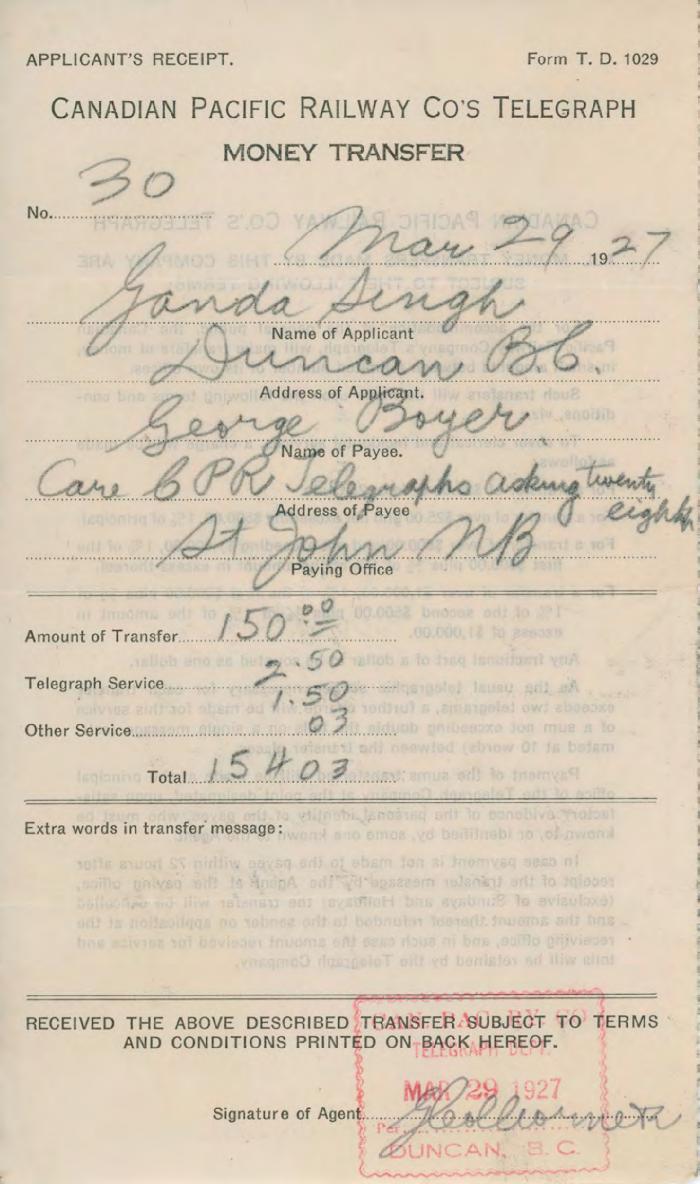 APPLICANT'S RECEIPT. Form T. D. 1029
CANADIAN PACIFIC RAILWAY CO'S TELEGRAPH
MONEY TRANSFER
No. 30
Mar 29 1927
Ganda Singh
Name of Applicant
Duncan B.C.
Address of Applicant.
George Boyer
Name of Payee.
Care C P R Telegraphs asking twenty
eighth
Address of Payee
St John NB
Paying Office
Amount of Transfer 150.00
Telegraph Service 2.50
1.50
Other Service 03
Total 154 03
Extra words in transfer message:
RECEIVED THE ABOVE DESCRIBED TRANSFER SUBJECT TO TERMS
AND CONDITIONS PRINTED ON BACK HEREOF.
CAN. PAC. RY. CO
TELEGRAPH DEPT.
MAR 29 1927
Signature of Agent
Per
DUNCAN, B. C.